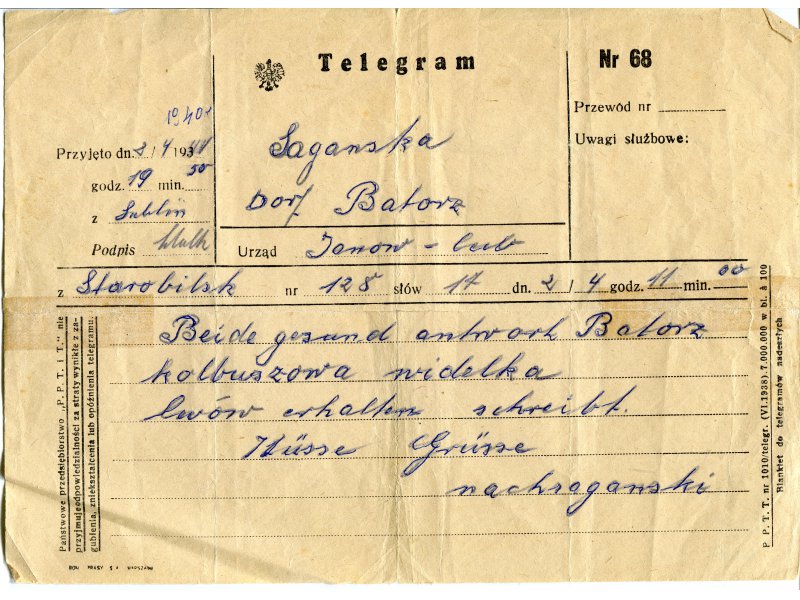 Telegram
Nr 68
Przewód nr
Uwagi służbowe:
19401
Przyjęto dn. 2/4 193
godz. 19 min. 50
z Lublin
Podpis
Saganska
Dorf Batorz
Urząd Janow - lub
z Starobilsk nr 128 słów 17 dn. 2/4 godz. 11 min. 00
Beide gesund antwort Batorz
kolbuszowa widelka
lwów erhalten schreibt.
Küsse Grüsse
nachsaganski
Państwowe przedsiębiorstwo „P. P. T. i T.” nie
przyjmuje odpowiedzialności za straty wynikłe z za-
gubienia, zniekształcenia lub opóźnienia telegramu.
P. P. T. T. nr 1010/telegr. (VI.1938). 7.000.000 w bl. à 100
Blankiet do telegramów nadeszłych